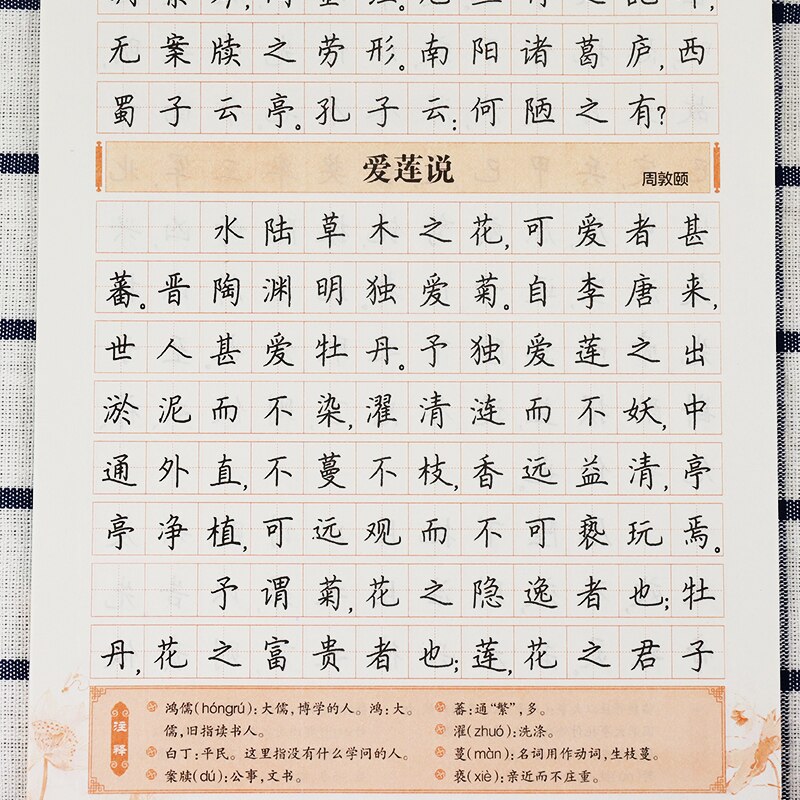 无案牍之劳形。南阳诸葛庐,西
蜀子云亭。孔子云:何陋之有?
爱莲说
周敦颐
水陆草木之花,可爱者甚
蕃。晋陶渊明独爱菊。自李唐来,
世人甚爱牡丹。予独爱莲之出
淤泥而不染,濯清涟而不妖,中
通外直,不蔓不枝,香远益清,亭
亭净植,可远观而不可亵玩焉。
予谓菊,花之隐逸者也;牡
丹,花之富贵者也;莲,花之君子
注释
鸿儒(hóngrú):大儒,博学的人。鸿:大。
儒,旧指读书人。
白丁:平民。这里指没有什么学问的人。
案牍(dú):公事,文书。
蕃:通“繁”,多。
濯(zhuó):洗涤。
蔓(màn):名词用作动词,生枝蔓。
亵(xiè):亲近而不庄重。